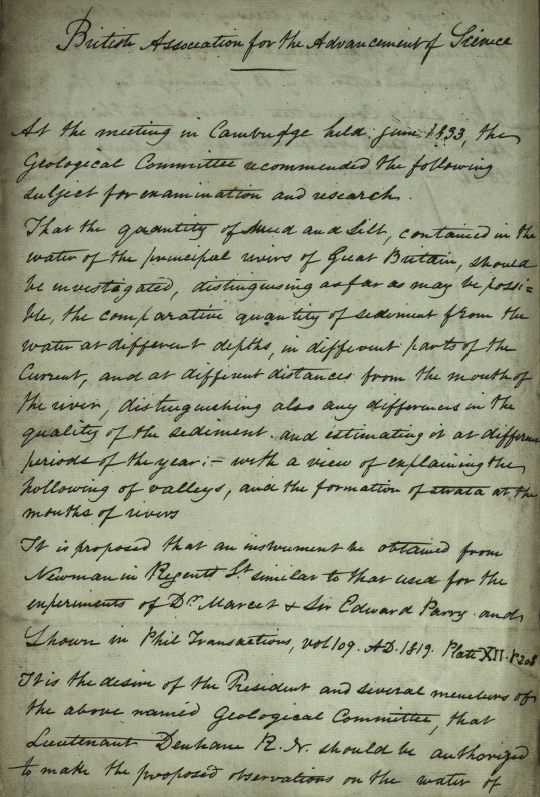 British Association for the Advancement of Science
At the meeting in Cambridge held June 1833, the
Geological Committee recommended the following
subject for examination and research.
That the quantity of Mud and Silt, contained in the
water of the principal rivers of Great Britain, should
be investigated, distinguising as far as may be possi=
ble, the comparative quantity of sediment from the
water at different depths, in different parts of the
Current, and at different distances from the mouth of
the river, distinguishing also any differences in the
quality of the sediment. and estimating it at different
periods of the year:– with a view of explaining the
hollowing of valleys, and the formation of strata at the
mouths of rivers
It is proposed that an instrument be obtained from
Newman in Regents St. similar to that used for the
experiments of Dr Marcet & Sir Edward Parry and
Shown in Phil Transactions, vol 109. AD. 1819. Plate XII. P208
It is the desire of the President and several members of
the above named Geological Committee, that
Lieutenant Denham R.N. should be authorized
to make the proposed observations on the water of